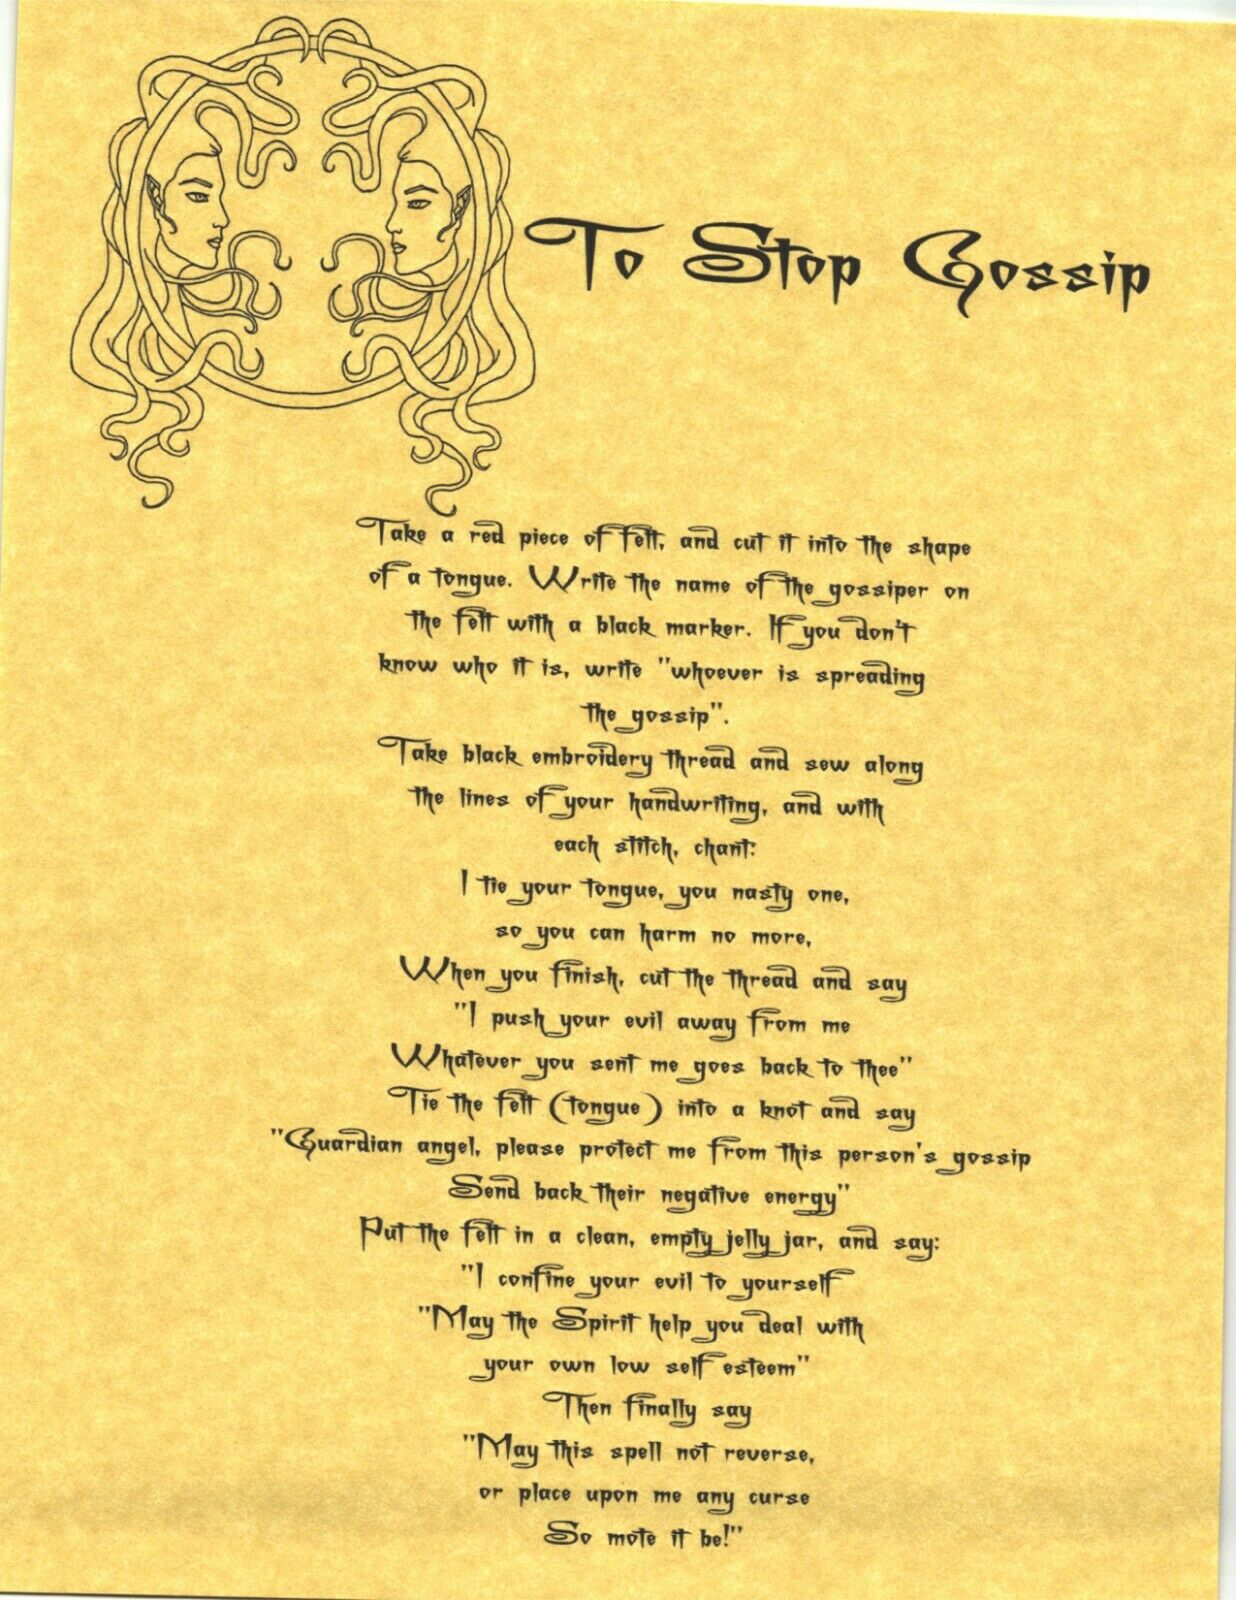 To Stop Gossip
Take a red piece of felt, and cut it into the shape
of a tongue. Write the name of the gossiper on
the felt with a black marker. If you don't
know who it is, write "whoever is spreading
the gossip".
Take black embroidery thread and sew along
the lines of your handwriting, and with
each stitch, chant:
I tie your tongue, you nasty one,
so you can harm no more,
When you finish, cut the thread and say
"I push your evil away from me
Whatever you sent me goes back to thee"
Tie the felt (tongue) into a knot and say
"Guardian angel, please protect me from this person's gossip
Send back their negative energy"
Put the felt in a clean, empty jelly jar, and say:
"I confine your evil to yourself
"May the Spirit help you deal with
your own low self esteem"
Then finally say
"May this spell not reverse,
or place upon me any curse
So mote it be!"